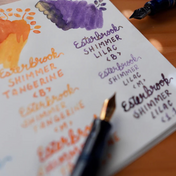 Esterbrook
SHIMMER
TANGERINE
<B>
Esterbrook
SHIMMER
TANGERINE
<M>
Esterbrook
SHIMMER
Esterbrook
SHIMMER
LILAC
<B>
Esterbrook
SHIMMER
LILAC
<M>
Esterbrook
SHIMMER
LILAC